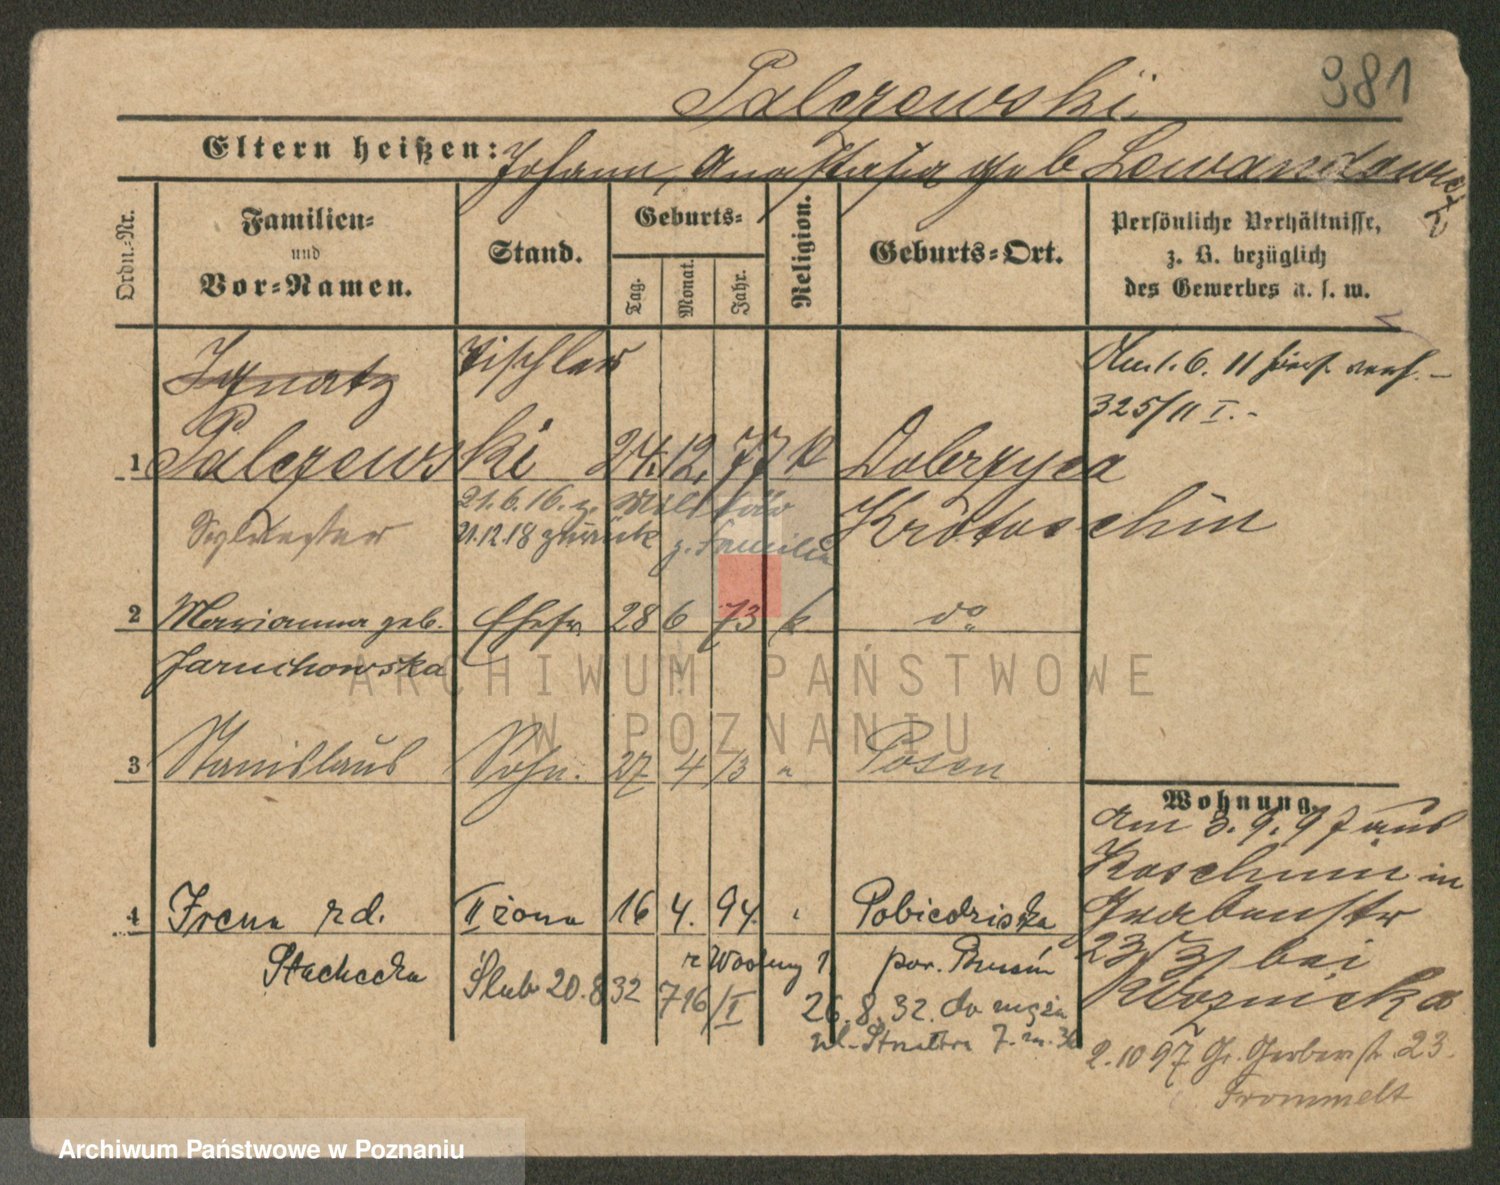 981
Palczewski
Eltern heißen: Johann, Anastasia geb Lewandowicz
Ordn.-Nr.
Familien-
und
Vor-Namen.
Stand.
Geburts-
Tag.
Monat.
Jahr.
Religion.
Geburts-Ort.
Persönliche Verhältnisse,
z. B. bezüglich
des Gewerbes u. s. w.
Ignatz Tischler
1 Palczewski 24. 12. 77 k Dobrzyca
Krotoschin
Sylvester
21.6.16. z. Militär
21.12.18 zurück z. Familie
Am 1. 6. 11 hier verh. –
325/11 I. -
2 Marianna geb. Ehefr 28 6 73 k do
Jaruchowska
3 Stanislaus Sohn. 27 4 13 " Posen
4 Irena z d. II żona 16 4. 94. Pobiedziska
Stachecka Ślub 20.8 32 716/I
26.8.32. do męża
7. m.
Wohnung.
Am 3. 9. 97 aus
Koschmin in
Grabenstr
23/3 bei
Woznicka
2.10 97 Gr. Gerberstr. 23.
Frommelt
ARCHIWUM PAŃSTWOWE
W POZNANIU
Archiwum Państwowe w Poznaniu